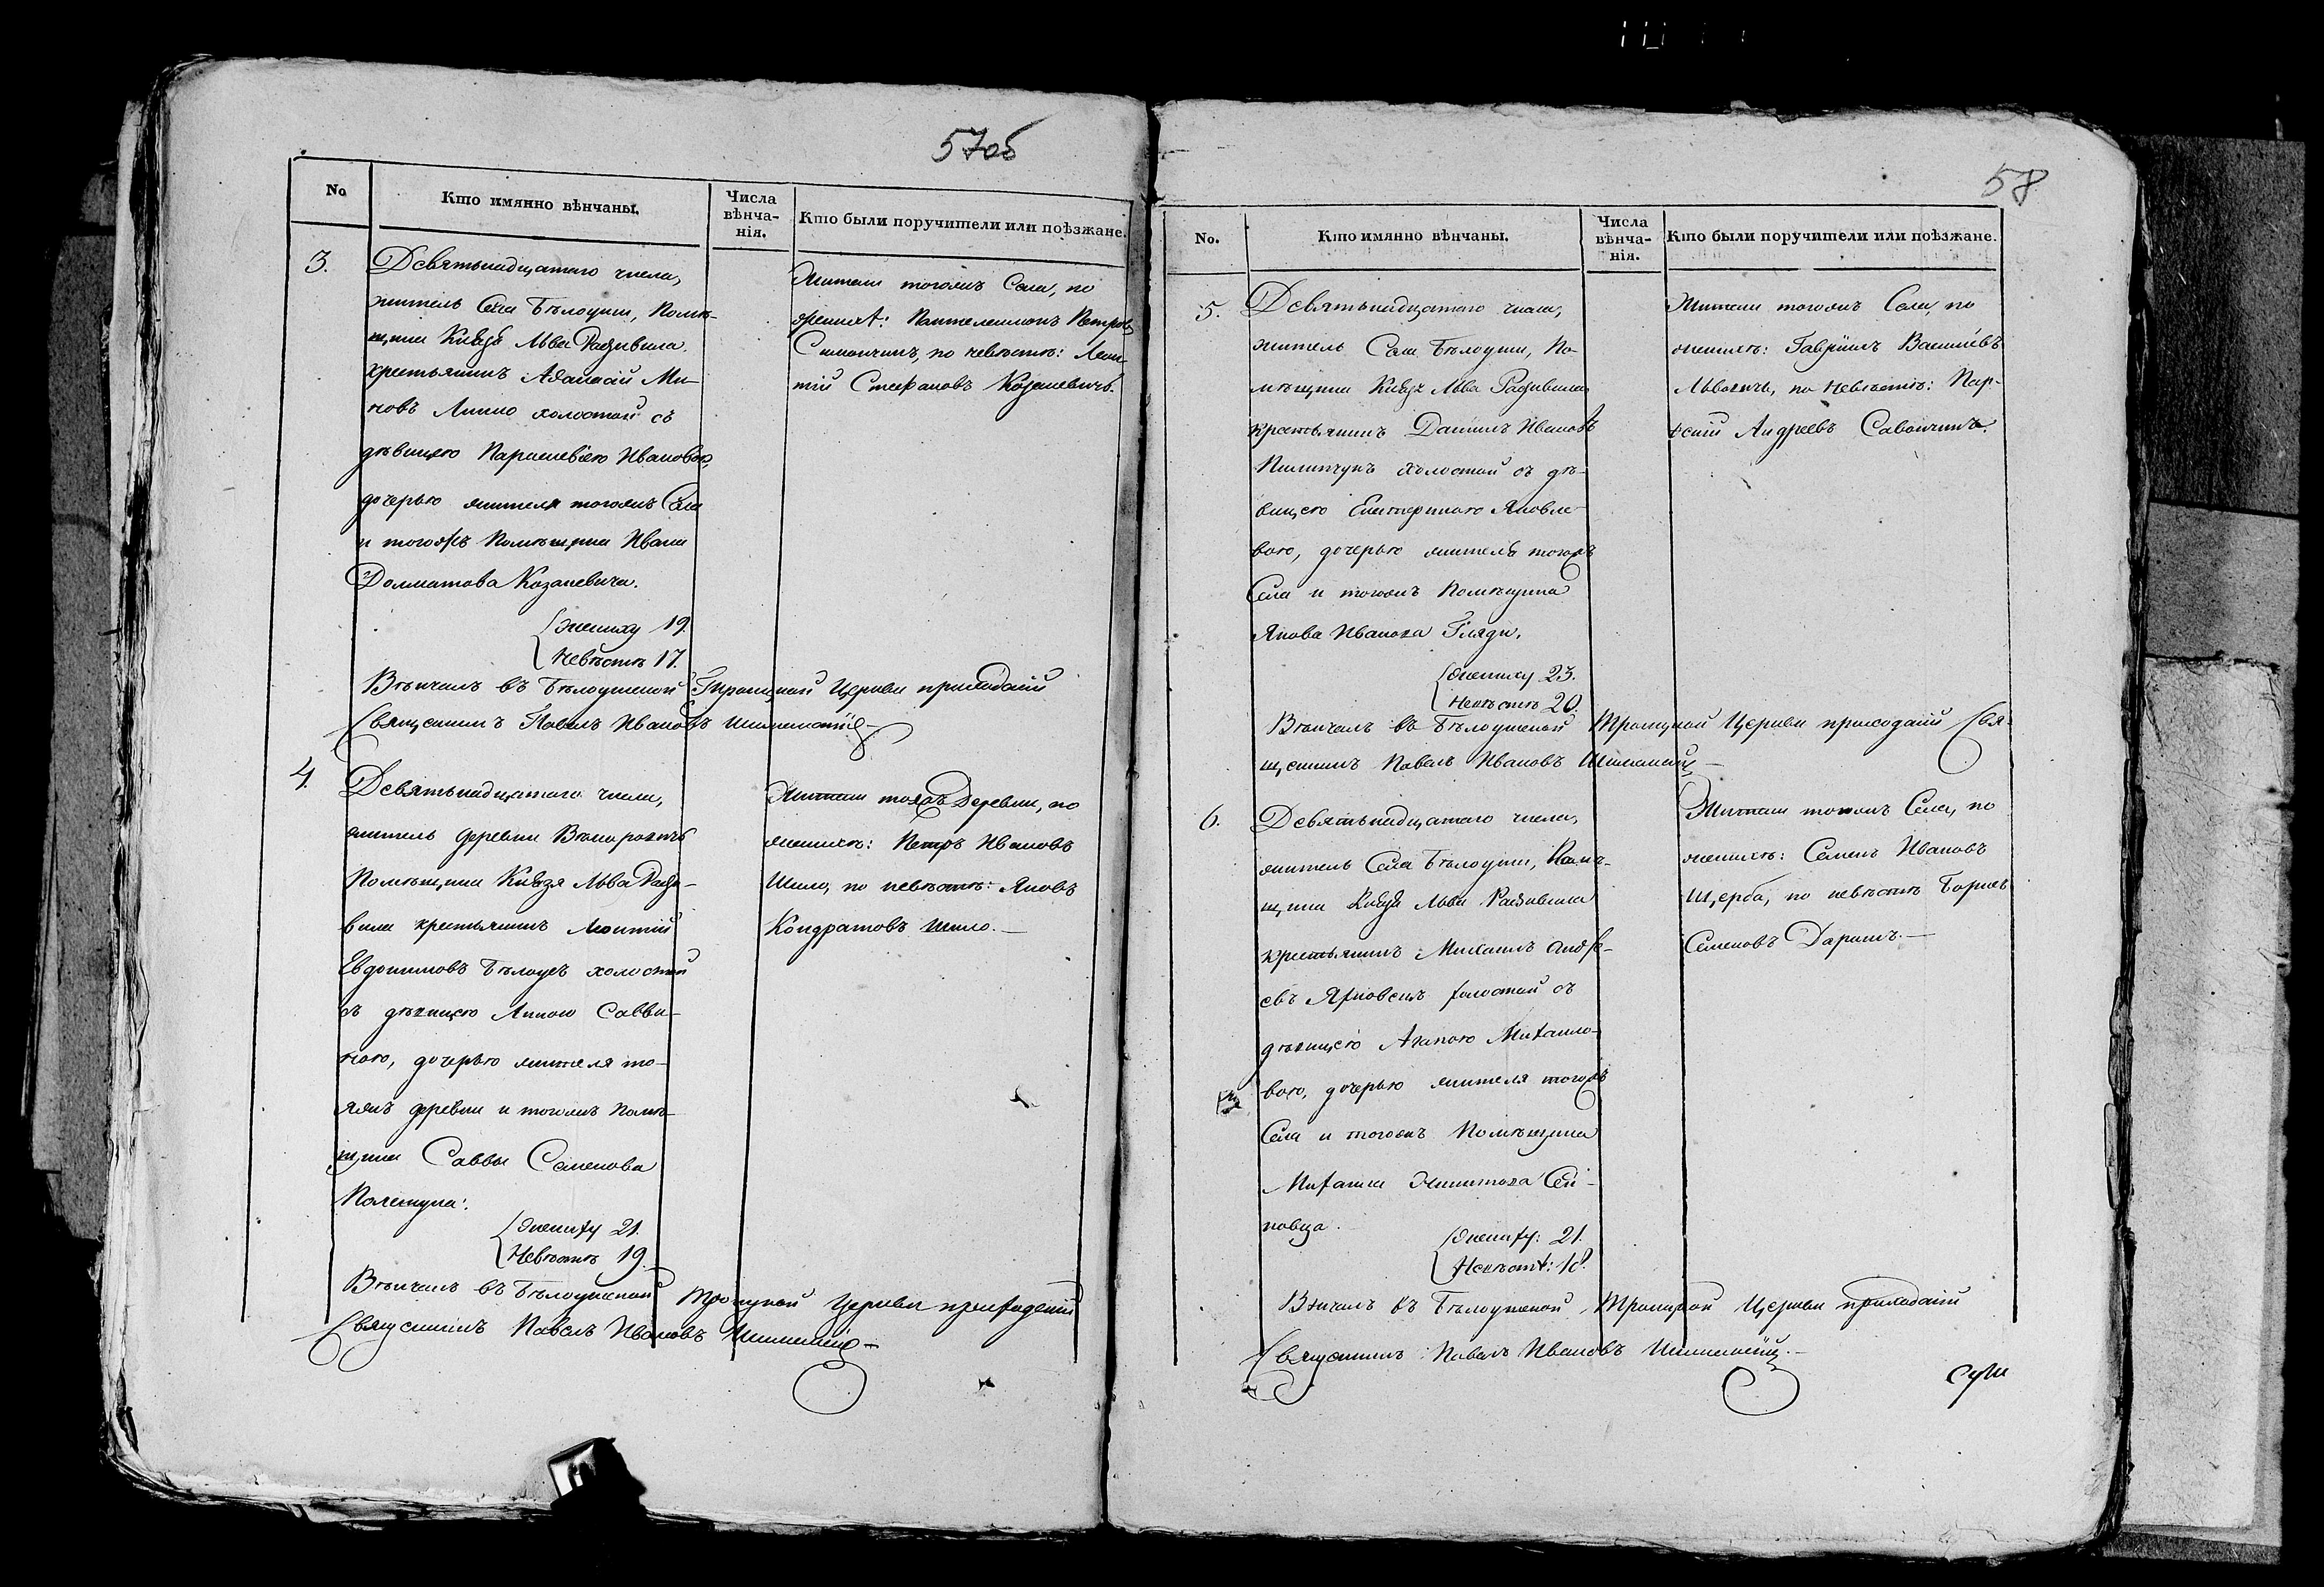 57об
No
Кто имянно вѣнчаны.
Числа
вѣнча-
нія.
Кто были поручители или поѣзжане.
3.
Девятьнадцатаго числа,
житель Села Бѣлоуши, Помѣ-
щика Князя Льва Радзивила
крестьянинъ Афанасій Ми-
новъ холостой съ
дѣвицею Параскевіею Ивановою,
дочерью жителя тогожъ Села
и тогожъ Помѣщика Ивана
Долматова Козакевича.
Жениху 19.
Невѣстѣ 17.
Вѣнчалъ въ Бѣлоушской Троицкой Церкви приходскій
Священникъ Павелъ Ивановъ
Жители тогожъ Села, по
женихѣ: Пантелеимонъ Петровъ
по невѣстѣ: Леон-
тій Стефановъ Козакевичъ.
4.
Девятьнадцатаго числа,
житель деревни
Помѣщика Князя Льва Радзи-
вила крестьянинъ Леонтій
Евдокимовъ Бѣлоусъ холостой
съ дѣвицею Анною Савви-
ною, дочерью жителя то-
яжъ деревни и тогожъ Помѣ-
щика Саввы Семенова
Полещука:
Жениху 21.
Невѣстѣ 19.
Вѣнчалъ въ Бѣлоушской Троицкой Церкви приходскій
Священникъ Павелъ Ивановъ
Жители тояжъ Деревни, по
женихѣ: Петръ Ивановъ
Шило, по невѣстѣ: Яковъ
Кондратовъ Шило.
58
No.
Кто имянно вѣнчаны.
Числа
вѣнча-
нія.
Кто были поручители или поѣзжане.
5.
Девятьнадцатаго числа,
житель Села Бѣлоуши, По-
мѣщика Князя Льва Радзивила
крестьянинъ Даніилъ Ивановъ
холостой съ дѣ-
вицею Екатериною Яковле-
вою, дочерью жителя тогожъ
Села и тогожъ Помѣщика
Якова Иванова
Жениху 23.
Невѣстѣ 20.
Вѣнчалъ въ Бѣлоушской Троицкой Церкви приходскій Свя-
щенникъ Павелъ Ивановъ
Жители тогожъ Села, по
женихѣ: Гавріилъ Васильевъ
по невѣстѣ: Пар-
Андреевъ
6.
Девятьнадцатаго числа,
житель Села Бѣлоуши, Помѣ-
щика Князя Льва Радзивила
крестьянинъ Михаилъ Андре-
евъ холостой съ
дѣвицею Агапою Михайло-
вою, дочерью жителя тогожъ
Села и тогожъ Помѣщика
Михаила
Жениху: 21.
Невѣстѣ: 18.
Вѣнчалъ въ Бѣлоушской Троицкой Церкви приходскій
Священникъ Павелъ Ивановъ
Жители тогожъ Села, по
женихѣ: Семенъ Ивановъ
Щерба, по невѣстѣ Борисъ
Семеновъ